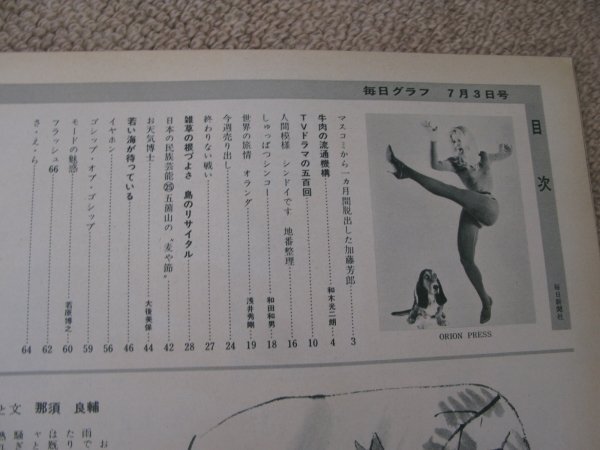 毎日グラフ 7月3日号
目次
毎日新聞社
ORION PRESS
マスコミから一カ月間脱出した加藤芳郎 3
牛肉の流通機構 和木光二朗 4
TVドラマの五百回 10
人間模様 シンドイです 地番整理 16
しゅっぱつシンコー 和田和男 18
世界の旅情 オランダ 浅井秀剛 19
今週売り出し 24
終わりない戦い 27
雑草の根づよさ 島のリサイタル 28
日本の民族芸能㉕五箇山の〝麦や節〟 42
お天気博士 大後美保 44
若い海が待っている 46
イヤホーン 56
ゴシップ・オブ・ゴシップ 59
モードの魅惑 若原博之 60
フラッシュ66 62
さ・え・ら 64
と文 那須 良輔